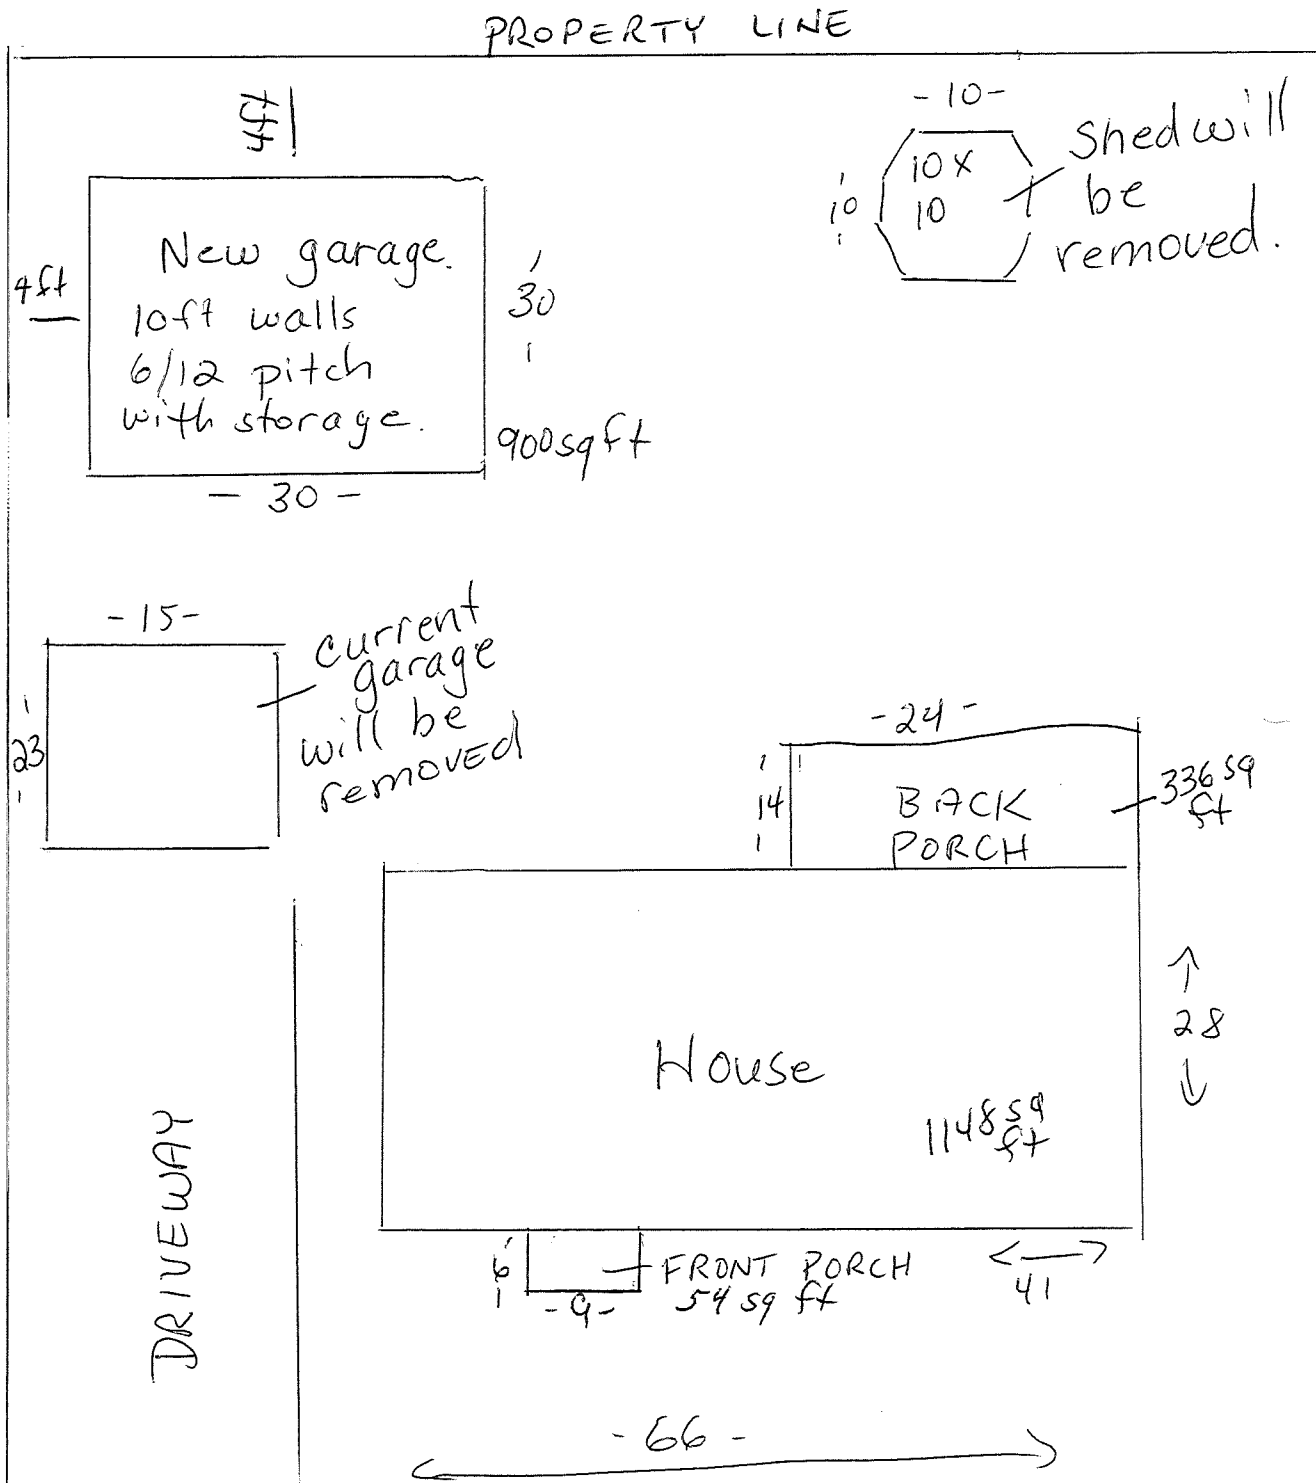 PROPERTY LINE
4ft
-10-
10
10 x
10
Shed will
be
removed.
4ft
New garage.
10ft walls
6/12 pitch
with storage.
30
900 sq ft
- 30 -
-15-
23
current
garage
will be
removed
-24-
14
BACK
PORCH
336 sq
ft
House
1148 sq
ft
28
DRIVEWAY
6
-9-
FRONT PORCH
54 sq ft
41
-66-